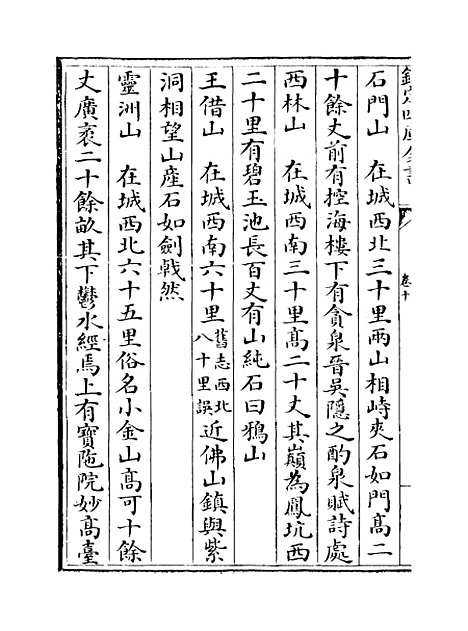 欽定四庫全書
卷十
石門山　在城西北三十里兩山相峙夾石如門高二
十餘丈前有控海樓下有貪泉晉吳隱之酌泉賦詩處
西林山　在城西南三十里高二十丈其巔為鳳坑西
二十里有碧玉池長百丈有山純石曰鵶山
王借山　在城西南六十里舊志西北八十里誤近佛山鎮與紫
洞相望山產石如劍戟然
靈洲山　在城西北六十五里俗名小金山高可十餘
丈廣袤二十餘畝其下鬱水經焉上有寶陁院妙高臺